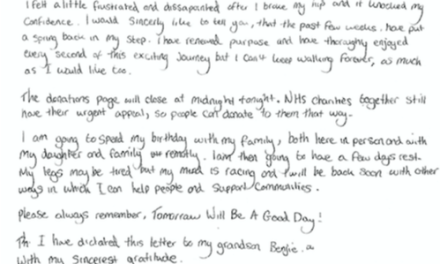 I felt a little frustrated and dissapointed after I broke my hip and it knocked my
Confidence. I would Sincerly like to tell you, that the past few weeks. have put
a spring back in my Step. I have renewed purpose and have thoroughly enjoyed
every second of this exciting Journey but I Can't keep walking forever, as much
as I would like too.
The donations page will close at midnight tonight. NHS charities together still
have their urgent appeal, so people can donate to them that way.
I am going to spend my birthday with my family, both here in person and with
My daughter and family remotly. I am then going to have a few days rest.
My legs may be tired but my mind is racing and I will be back soon with other
ways in which I can help people and Support Communities.
Please always remember, Tomorrow Will Be A Good Day!
I have dictated this letter to my grandson Benjie.
With my sincerest gratitude.